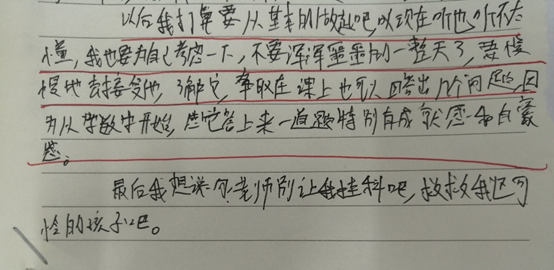 以后我打算要从基本的做起吧,以现在听也听不太
懂,我也要为自己考虑一下,不要浑浑噩噩的一整天了,要慢
慢地去接受他,了解它,争取在课上也可以回答出几个问题,因
为从学数电开始,感觉答上来一道题特别有成就感和自豪
感。
最后我想说句:老师别让我挂科吧,救救我这可
怜的孩子吧。